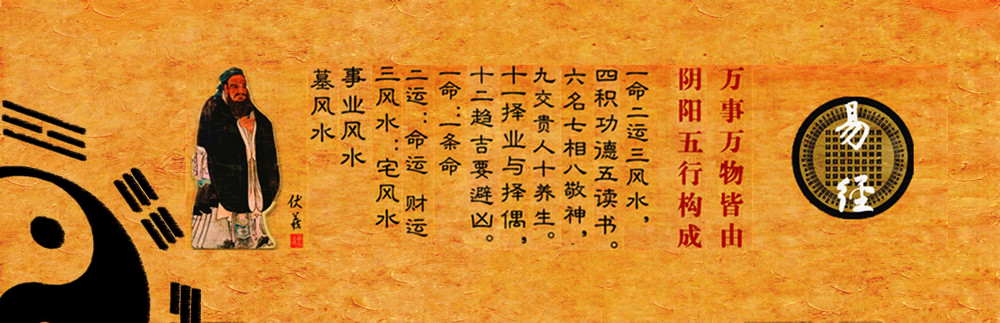 易經
万事万物皆由
阴阳五行构成
一命二运三风水，
四积功德五读书。
六名七相八敬神，
九交贵人十养生。
十一择业与择偶，
十二趋吉要避凶。
一命：一条命
二运：命运 财运
三风水：宅风水
事业风水
墓风水
伏羲